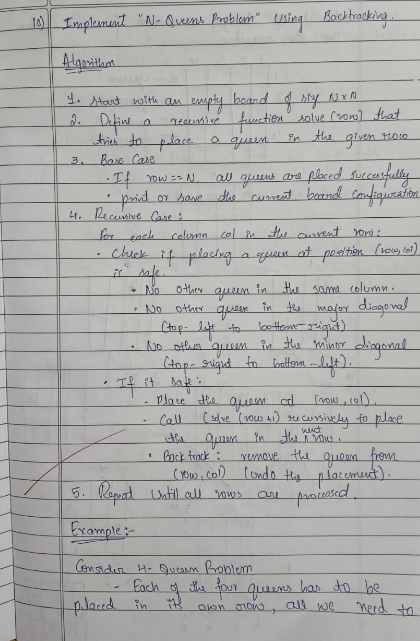 10) Implement "N-Queens Problem" using Backtracking.
Algorithm
1. Start with an empty board of size N x N
2. Define a recursive function solve (row) that
tries to place a queen in the given row
3. Base Case
· If row == N, all queens are placed successfully
· print or save the current board configuration
4. Recursive Case :
For each column col in the current row:
· Check if placing a queen at position (row, col)
is safe.
· No other queen in the same column.
· No other queen in the major diagonal
(top-left to bottom-right)
· No other queen in the minor diagonal
(top-right to bottom-left).
· If it safe :
- Place the queen at (row, col).
- Call (solve (row+1) recursively to place
the queen in the next row.
· Backtrack : remove the queen from
(row, col) (undo the placement).
5. Repeat Until all rows are processed.
Example:-
Consider 4-Queen Problem
- Each of the four queens has to be
placed in its own row, all we need to